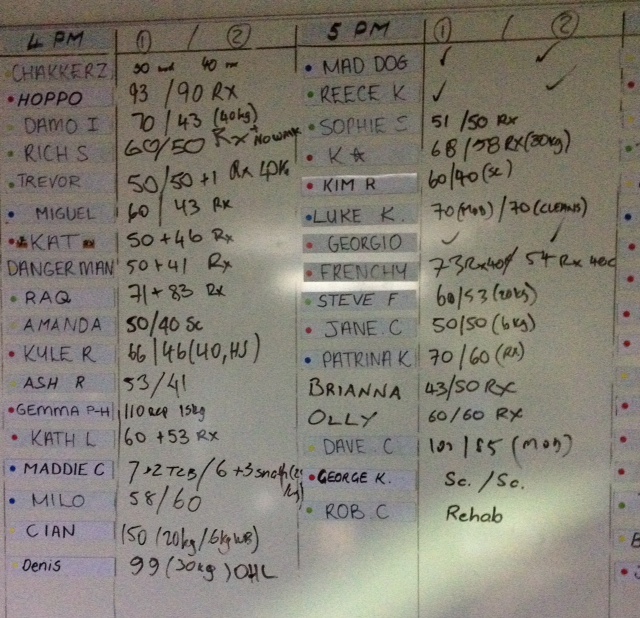 4 PM ① / ②
CHAKKERZ 50 40
HOPPO 93 / 90 RX
DAMO I 70 / 43 (40kg)
RICH S 60/50 Rx
TREVOR 50/50 +1 Rx
MIGUEL 60 / 43 Rx
KAT 50 + 46 Rx
DANGERMAN 50 + 41 Rx
RAQ 71 + 83 Rx
AMANDA 50/40 Sc
KYLE R 66 / 46 (40, HS)
ASH R 53/41
GEMMA P-H 110 rep 15kg
KATH L 60 + 53 RX
MADDIE C 7+2 T2B / 6 + 3 snatch
MILO 58/60
CIAN 150 (20kg/6kg WB)
Denis 99 (30kg) OHL
5 PM ① / ②
MAD DOG ✓ ✓
REECE K ✓ ✓
SOPHIE S 51 / 50 Rx
K ☆ 68 / 58 RX (30kg)
KIM R 60/40 (Sc)
LUKE K. 70 (MOD) / 70 (CLEANS)
GEORGIO ✓ ✓
FRENCHY 73 Rx 40 / 54 Rx
STEVE F 60/53 (20kg)
JANE C 50/50 (6kg)
PATRINA K 70 / 60 (RX)
BRIANNA 43/50 RX
OLLY 60/60 RX
DAVE C / 85 (MOD)
GEORGE K. Sc. / Sc.
ROB C Rehab